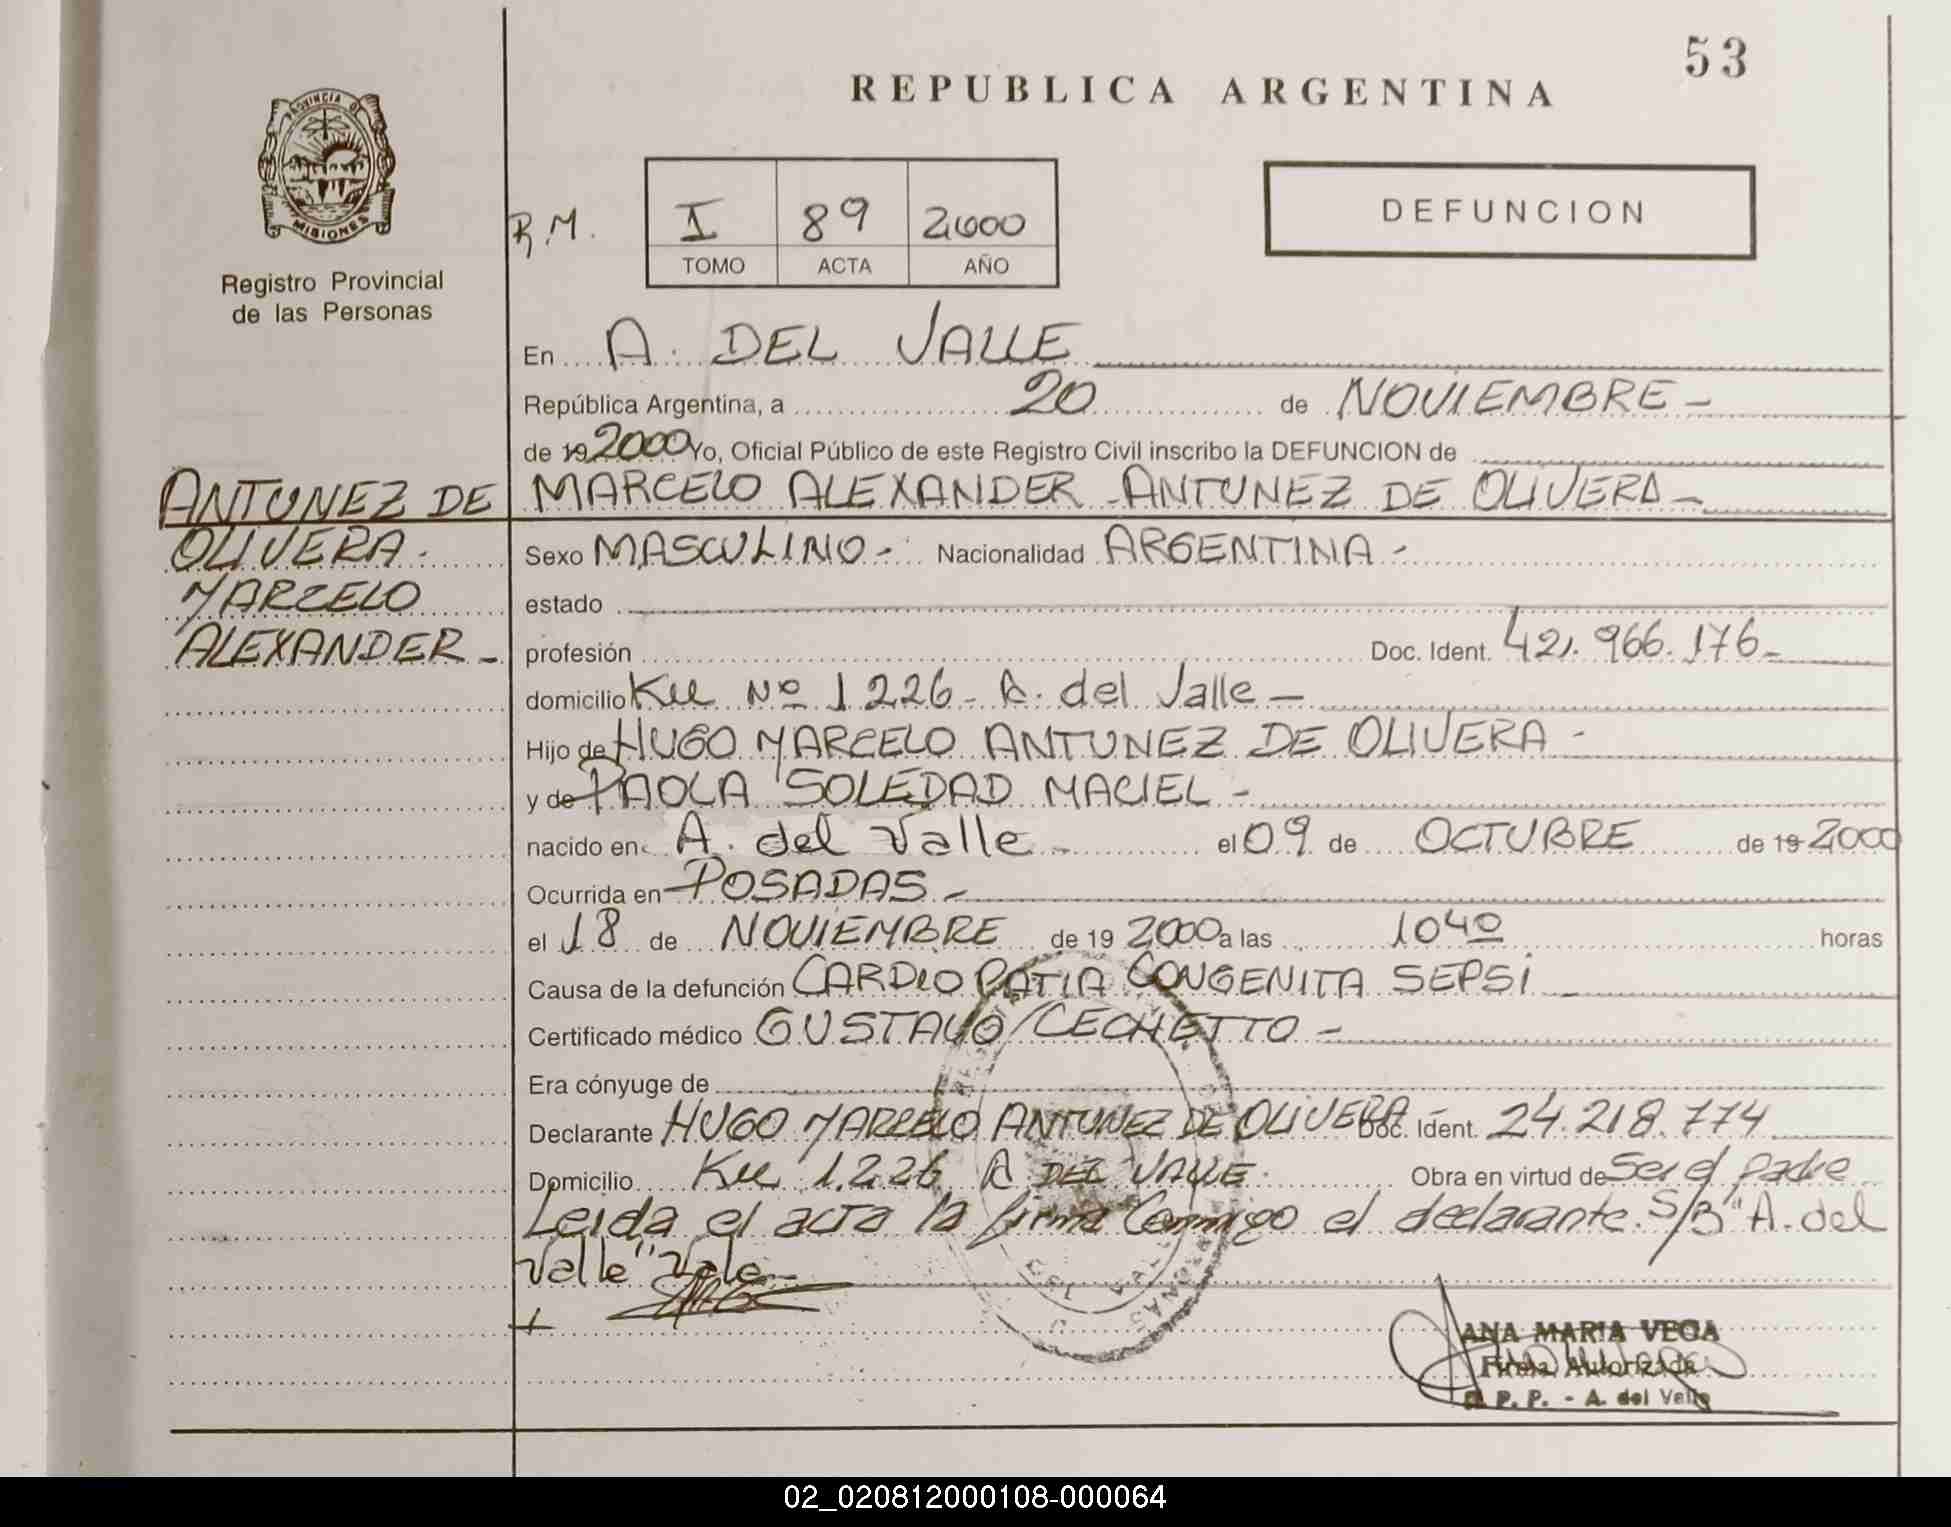 53
REPUBLICA ARGENTINA
PROVINCIA DE
MISIONES
Registro Provincial
de las Personas
R.M.
I 89 2000
TOMO ACTA AÑO
DEFUNCION
En A. DEL VALLE
República Argentina, a 20 de NOVIEMBRE -
de 19 2000 Yo, Oficial Público de este Registro Civil inscribo la DEFUNCION de
MARCELO ALEXANDER ANTUNEZ DE OLIVERA -
ANTUNEZ DE
OLIVERA.
MARCELO
ALEXANDER -
Sexo MASCULINO - Nacionalidad ARGENTINA -
estado
profesión Doc. Ident. 421.966.176-
domicilio Nº 1226 - A. del Valle -
Hijo de HUGO MARCELO ANTUNEZ DE OLIVERA -
y de PAOLA SOLEDAD MACIEL -
nacido en A. del Valle - el 09 de OCTUBRE de 19 2000
Ocurrida en POSADAS -
el 18 de NOVIEMBRE de 19 2000 a las 1040 horas
Causa de la defunción CARDIOPATIA CONGENITA SEPSI -
Certificado médico GUSTAVO CECHETTO -
Era cónyuge de
Declarante HUGO MARCELO ANTUNEZ DE OLIVERA Doc. Ident. 24.218.774
Domicilio 1.226 A DEL VALLE. Obra en virtud de Ser el padre
Leida el acta la firma Conmigo el declarante. S/B "A. del
Valle" Vale -
ANA MARIA VEGA
Firma Autorizada
R. P. P. - A. del Valle
02_020812000108-000064